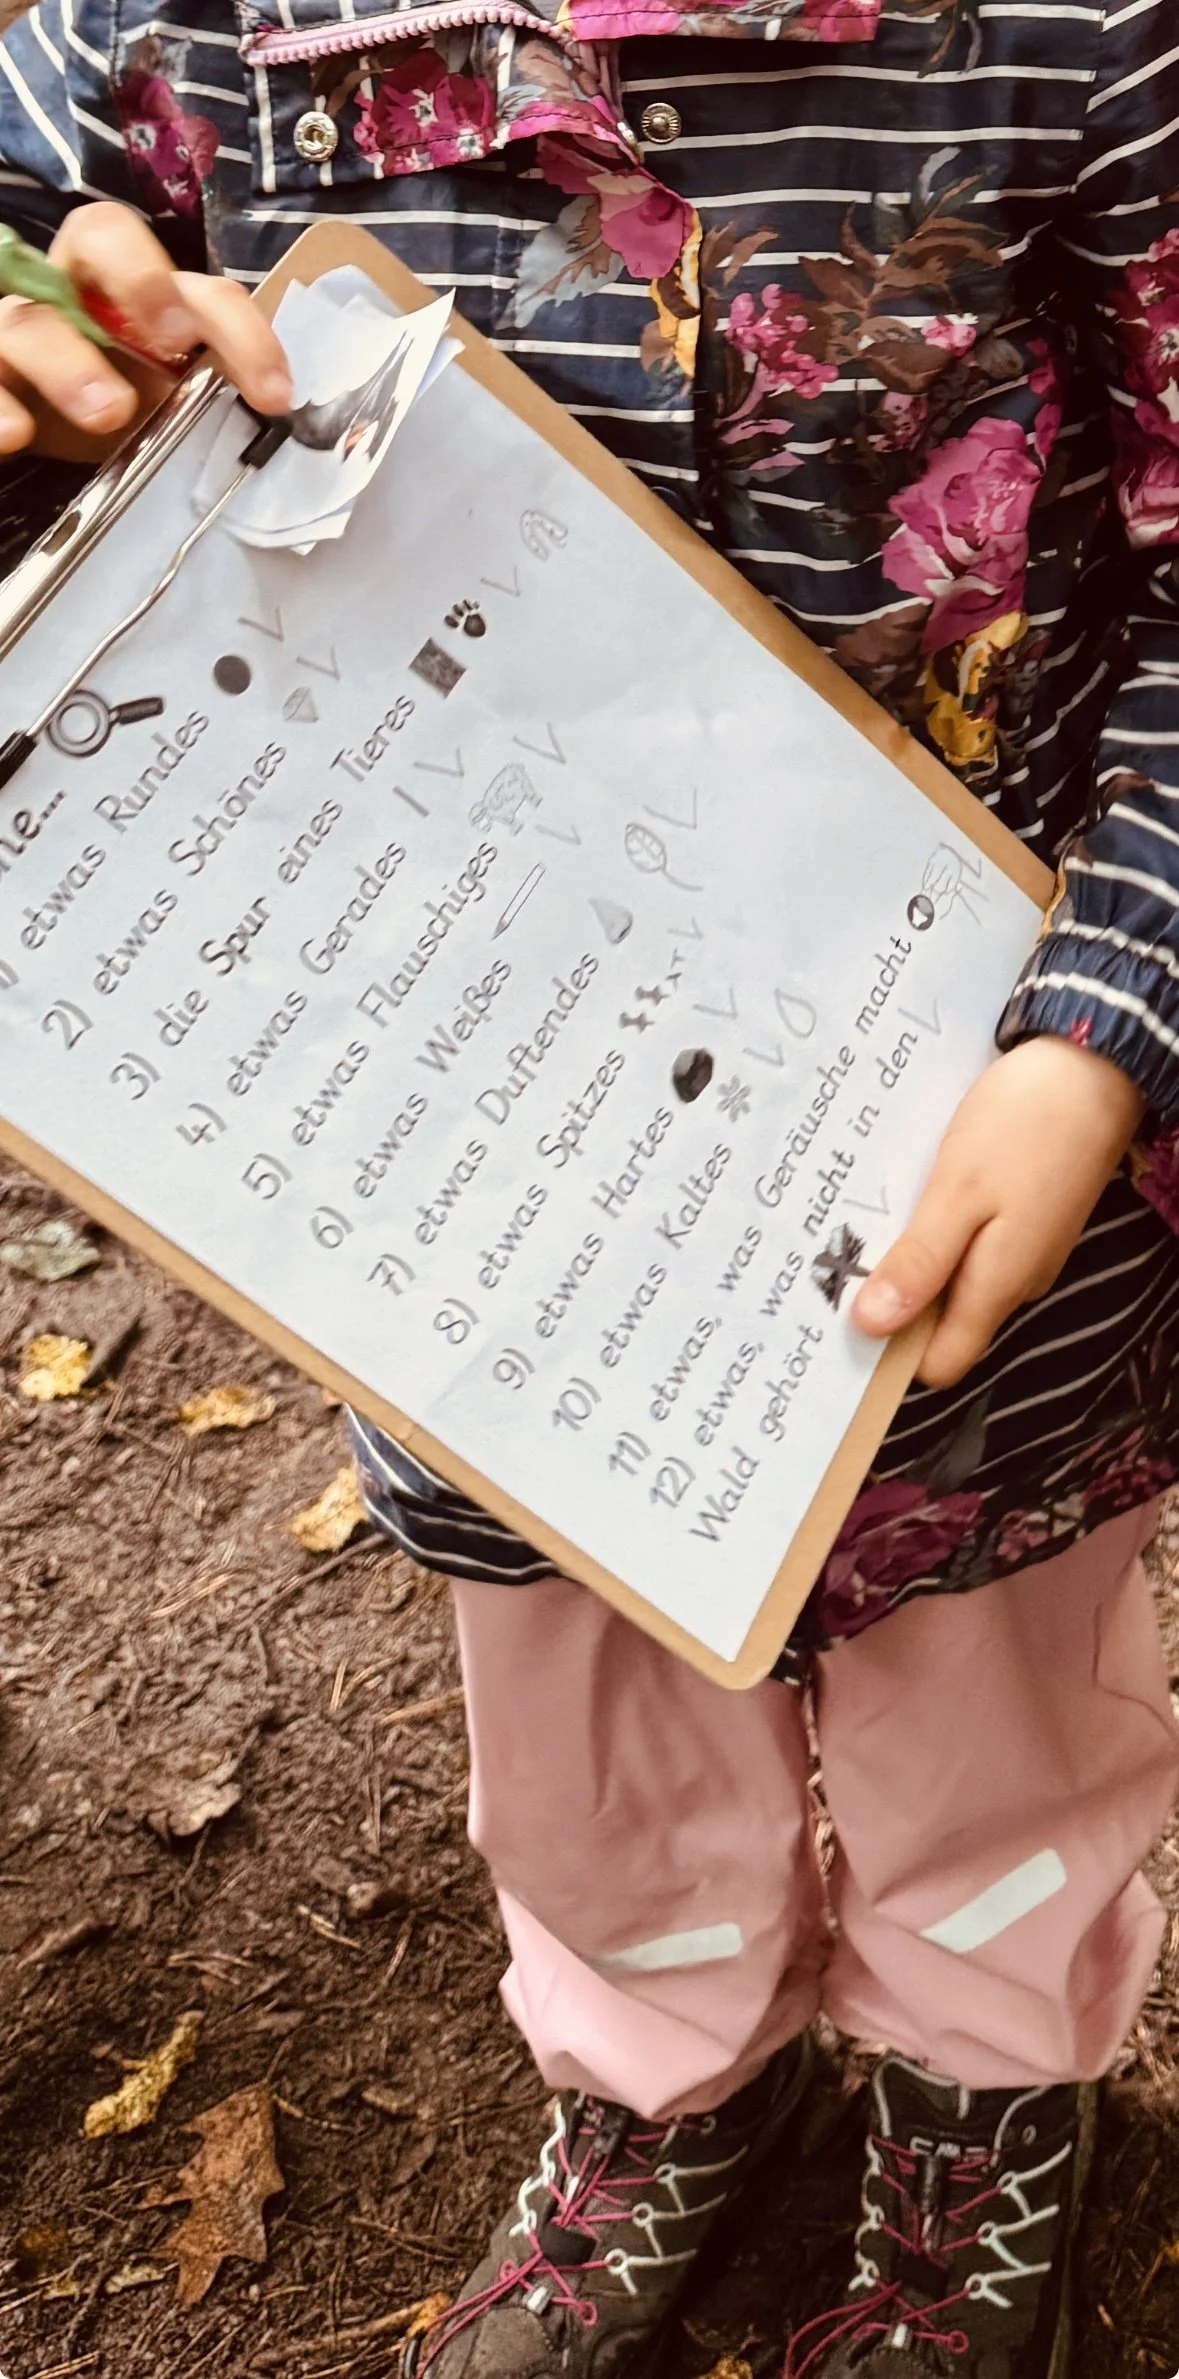 1) etwas Rundes
2) etwas Schönes
3) die Spur eines Tieres
4) etwas Gerades
5) etwas Flauschiges
6) etwas Weißes
7) etwas Duftendes
8) etwas Spitzes
9) etwas Hartes
10) etwas Kaltes
11) etwas, was Geräusche macht
12) etwas, was nicht in den
Wald gehört